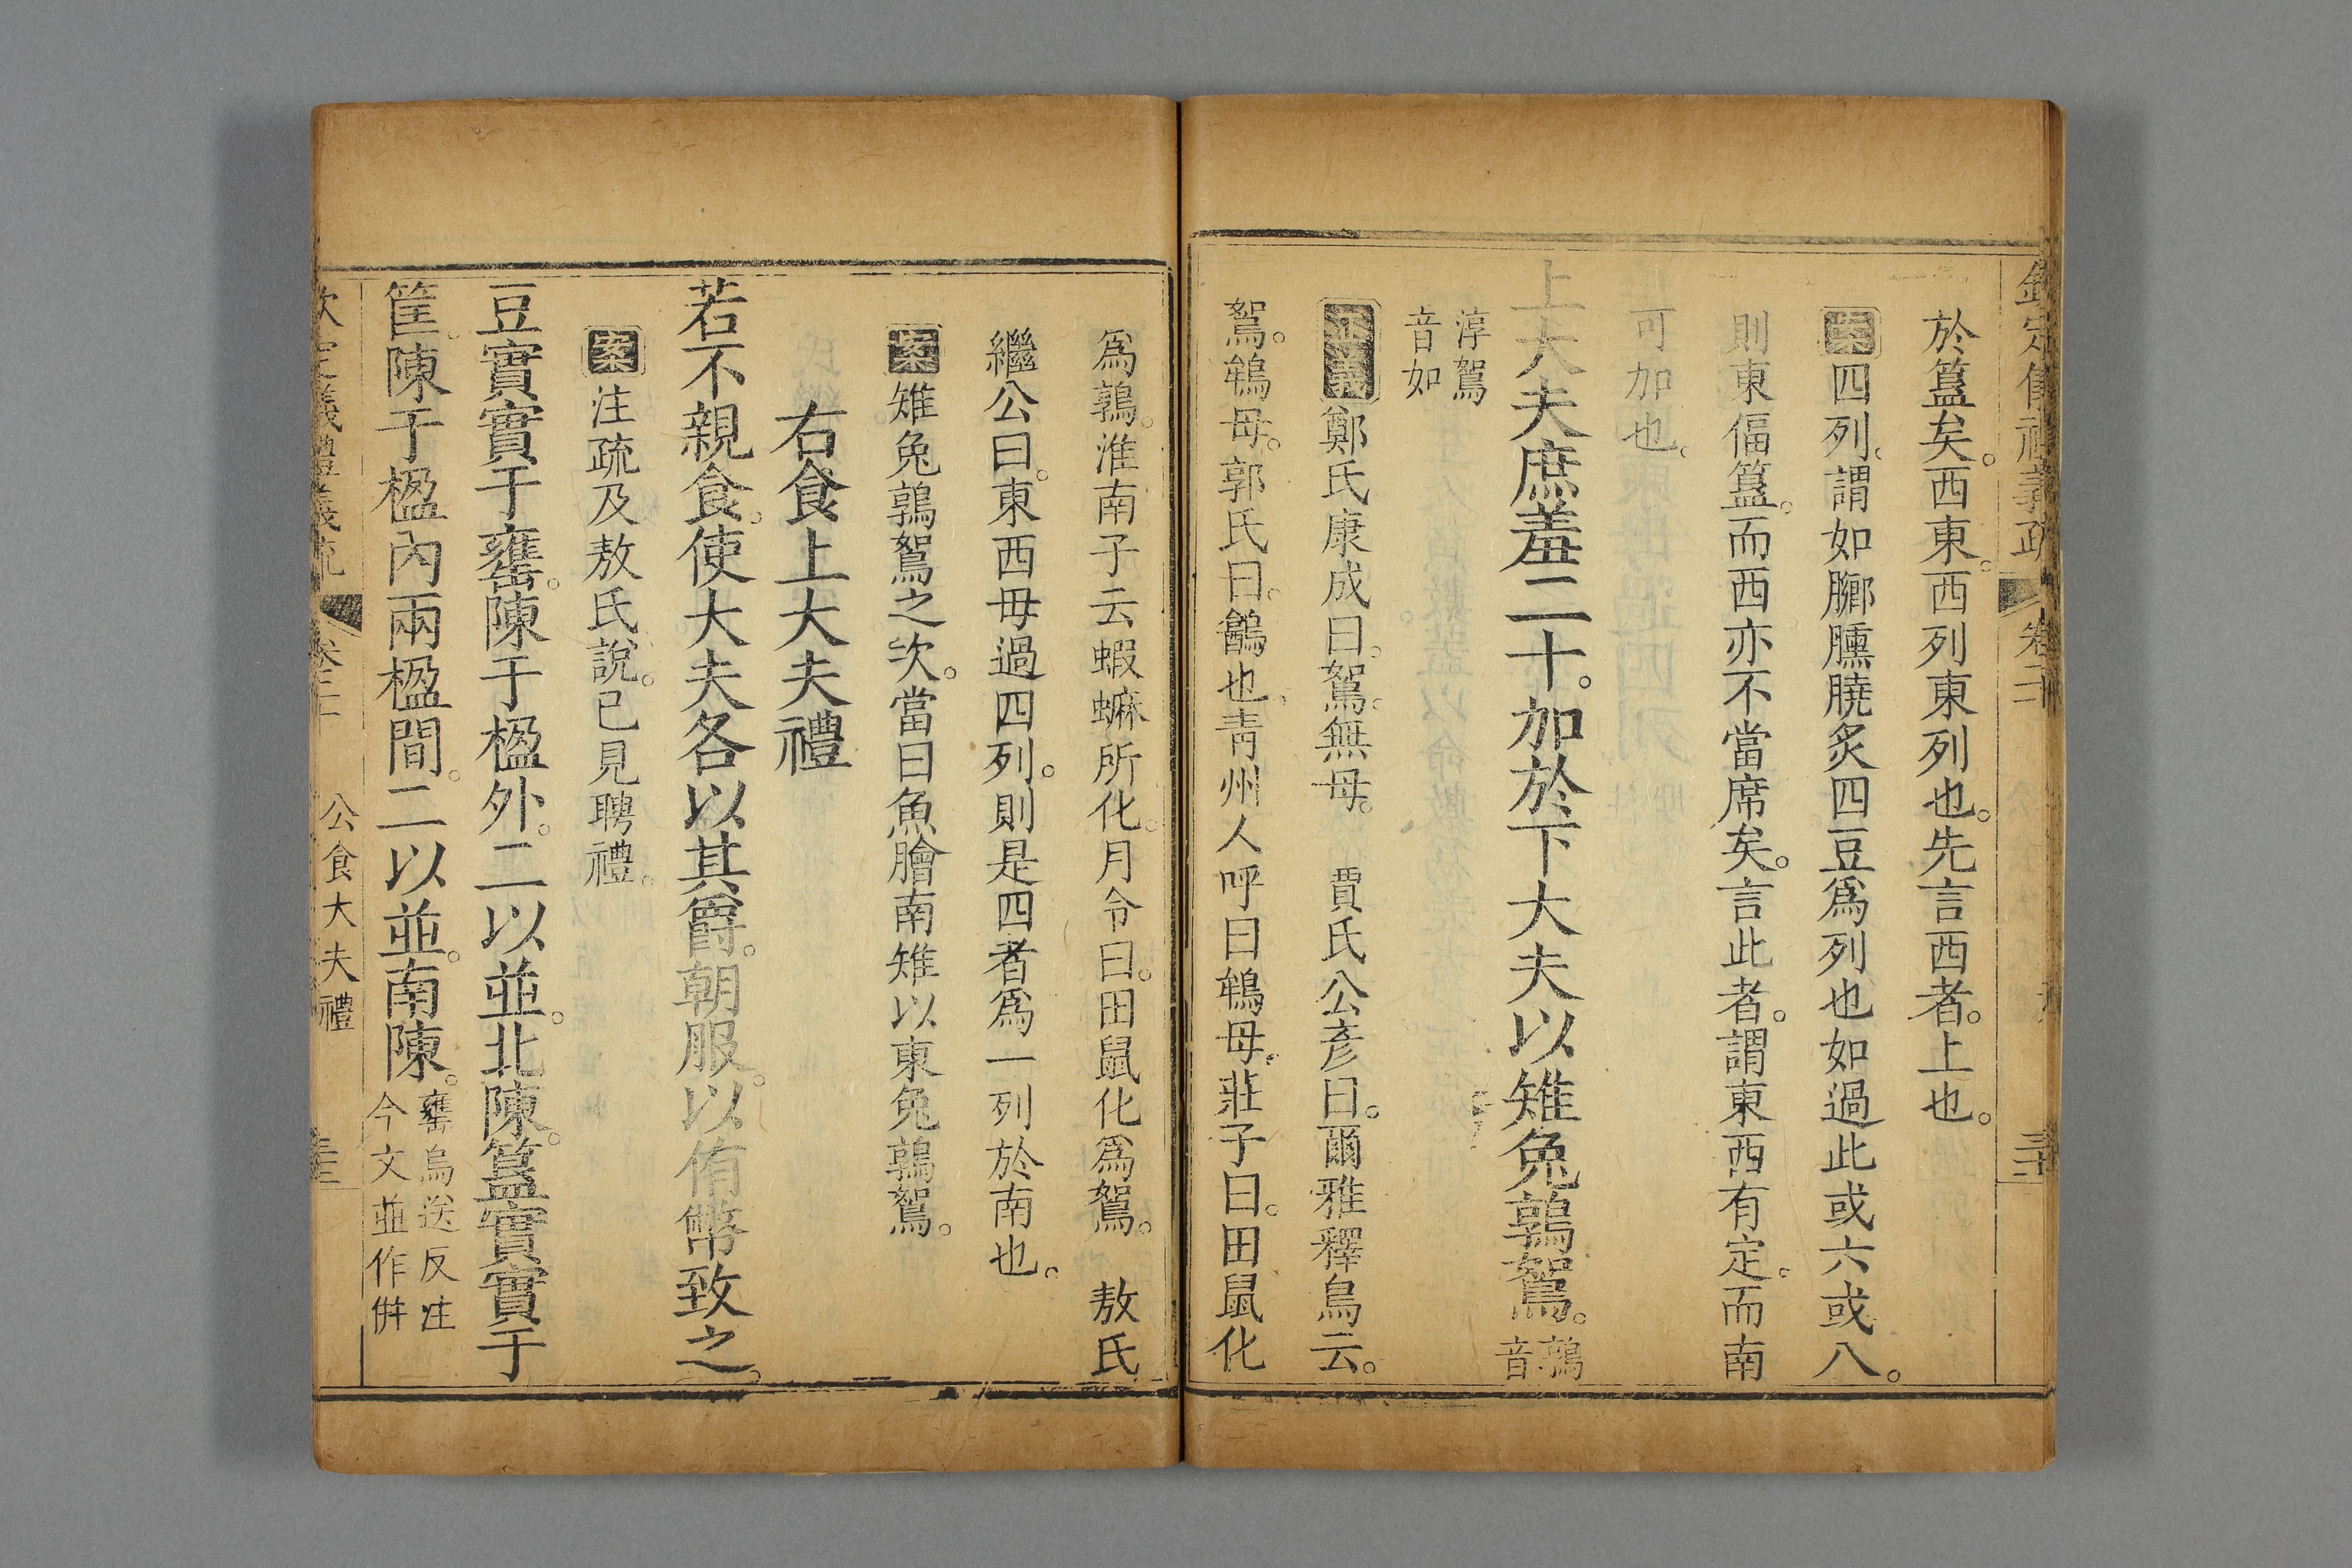 欽定儀禮義疏 卷二十
於簋矣。西東。西列東列也。先言西者。上也。
案四列。謂如膷臐膮炙四豆爲列也如過此或六或八。
則東偪簋。而西亦不當席矣。言此者。謂東西有定。而南
可加也。
上大夫庶羞二十。加於下大夫以雉兔鶉鴽。鶉音
淳鴽音如
正義鄭氏康成曰。鴽。無母。 賈氏公彥曰。爾雅釋鳥云。
鴽。鴾母。郭氏曰。鶕也。靑州人呼曰鴾母。莊子曰。田鼠化
爲鶉。淮南子云蝦蟆所化。月令曰。田鼠化爲鴽。 敖氏
繼公曰。東西毋過四列。則是四者爲一列於南也。
案雉兔鶉鴽之次。當曰魚膾南雉以東兔鶉鴽。
右食上大夫禮
若不親食。使大夫各以其爵。朝服。以侑幣致之。
案注疏及敖氏說。已見聘禮。
豆實實于罋。陳于楹外。二以並。北陳。簋實實于
筐。陳于楹內兩楹間。二以並。南陳。罋烏送反注今文並作併
欽定儀禮義疏 卷二十 公食大夫禮